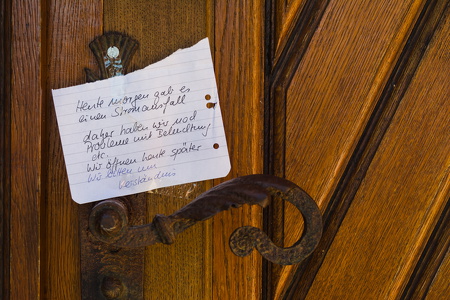 Heute morgen gab es
einen Stromausfall
daher haben wir noch
Probleme mit Beleuchtung
etc.
Wir öffnen heute später
Wir bitten um
Verständnis